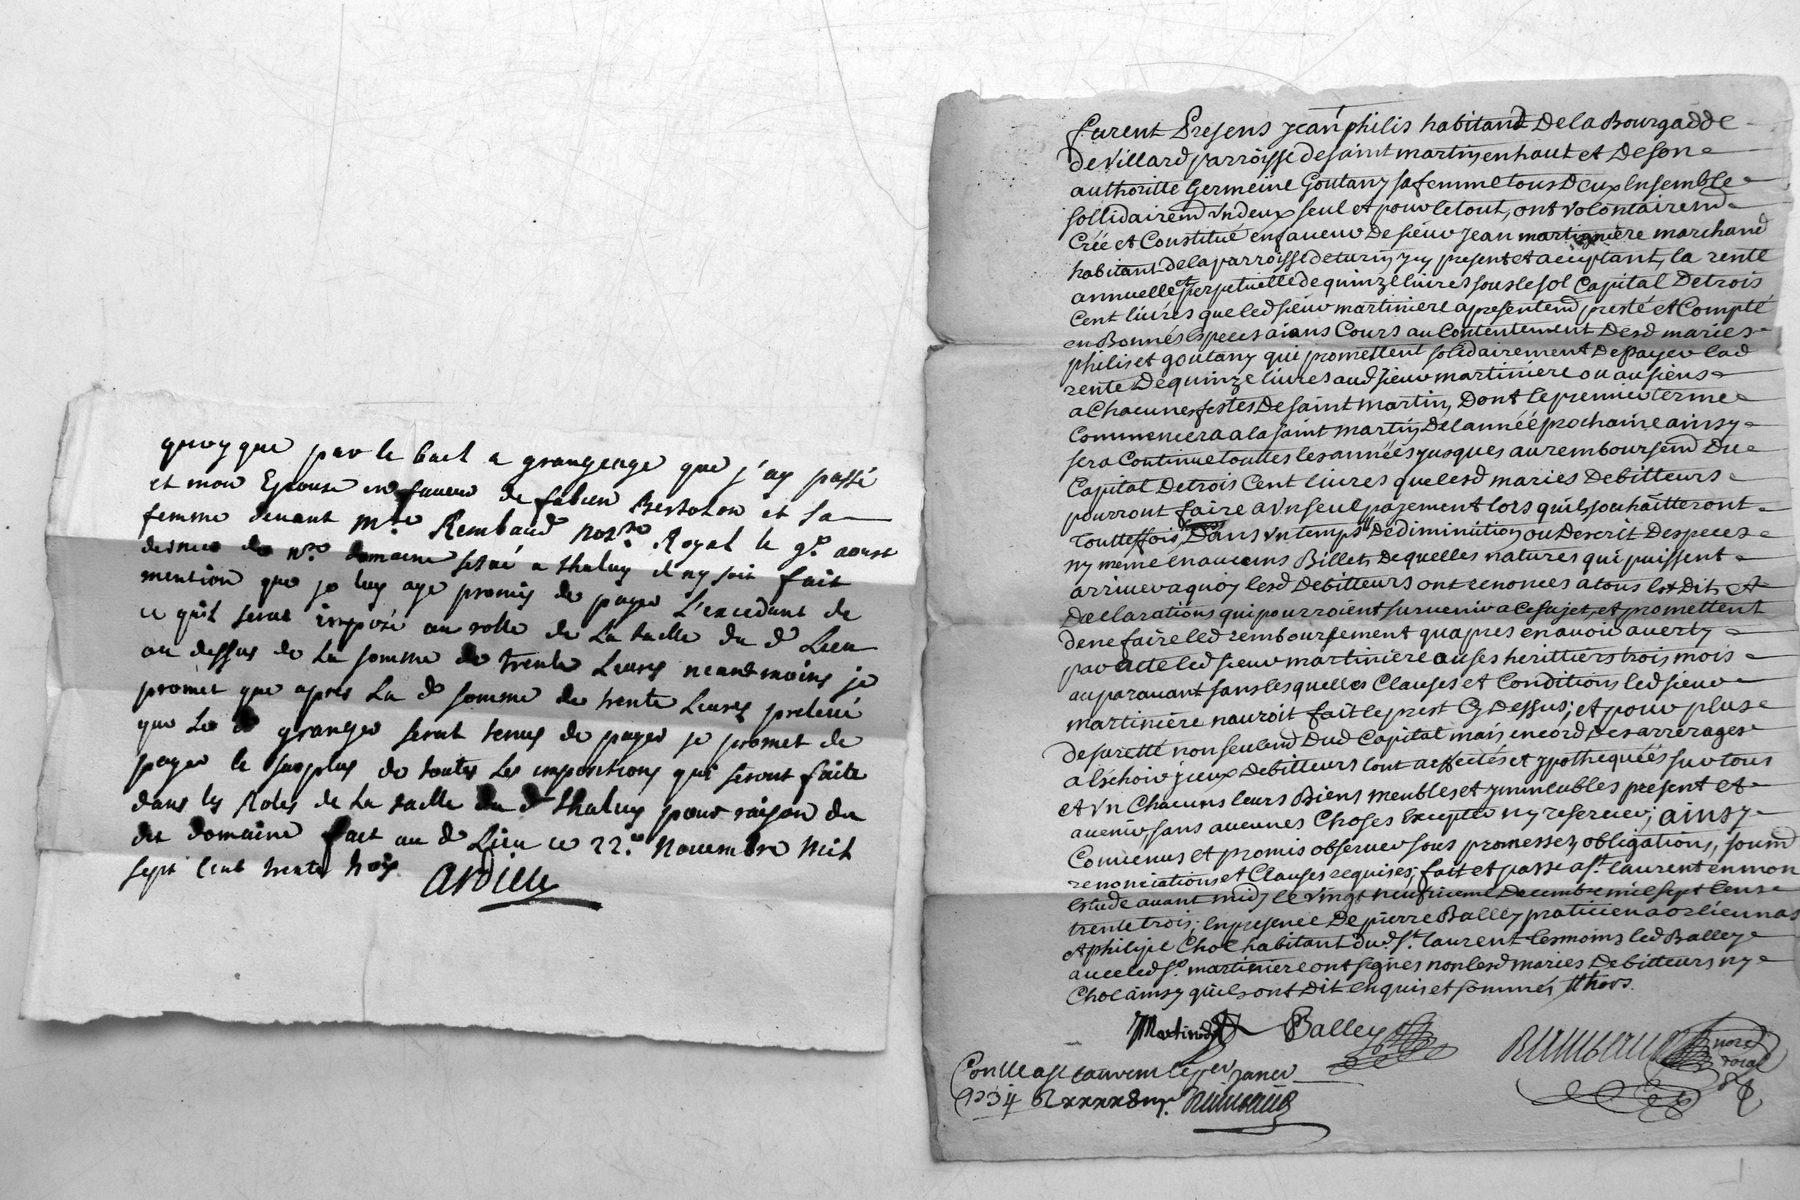 quoy que par le bail a grangeage que j'ay passé
et mon Epouse en faveur de fabien Bertolon et sa
femme devant Mre. Rembaud Notre. Royal le 9e. aoust
dernier de nre. domaine situé a thaluy il ny soit fait
mention que je luy aye promis de payer L'excedant de
ce quil serat imposé au rolle de La taille du d Lieu
au dessus de La somme de trente Livres neantmoins je
promet que apres La de somme de trente Livres prelevé
que Le d granger serat tenus de payer je promet de
payer le surplus de toutes Les impositions qui seront faite
dans les Roles de La taille du d thaluy pour raison du
dit domaine fait au d Lieu ce 22e. Novembre Mil
sept Cent trente trois
ardieu
furent Presens jean philis habitand De la Bourgadde
de villard parroisse de saint martin en haut et De son
authoritté Germeine Goutany sa femme tous Deux Ensemble
sollidairemd un deux seul et pour le tout, ont volontairemd
Créé et Constitué en faveur De sieur jean martinière marchand
habitant de la parroisse de turin icy present et acceptant, la rente
annuelle et perpetuelle de quinze livres sous le sol Capital De trois
Cent livres que led sieur martiniere a presentemd presté et Compté
en Bonnés Especes aians Cours au Contentement Desd mariés
philis et goutany qui promettent solidairement De payer lad
rente De quinze livres aud sieur martiniere ou au siens
a Chacunes festes De saint martin, Dont le premier terme
Commencera a la saint martin De l'année prochaine ainsy
sera Continue touttes les années jusques au remboursemd Du
Capital De trois Cent livres que lesd maries Debitteurs
pourront faire a un seul payement lors quils souhaitteront
touttefois, Dans un temps De diminution ou Descrit Despeces
ny même en aucuns Billets De quelles natures qui puissent
arriver a quoy lesd Debitteurs ont renoncés a tous Edits Et
Déclarations qui pourroient survenir a ce sujet, et promettent
de ne faire led remboursement qu'apres en avoir averty
par acte led sieur martiniere ou ses herittiers trois mois
auparavant sans lesquelles Clauses et Conditions led sieur
martinière nauroit fait le prest Cy Dessus; et pour plus
de sureté non seulemd Dud Capital mais encord Des arrerages
a Echoir jceux Debitteurs sont affectés et ypothequés sur tous
et un Chacuns leurs Biens meubles et ymmeubles present et
avenir sans aucunes Choses Excepter ny reserver; ainsy
Convenus et promis observer sous promesses obligations, soumd
renonciations et Clauses requises; fait et passé a st. laurent en mon
Etude avant midy le vingt neufvieme Decembre mil sept Cens
trente trois; En presence De pierre Balley praticien a orlienas
et philipe Chol habitant dud. st. laurent tesmoins led Balley
avec led sr. martiniere ont signés non lesd maries Debitteurs ny
Chol ainsy quils ont Dit Enquis et sommés
Balley Rimbaud nore royal
Conlle a st laurent le per janer
1734
Rimbaud